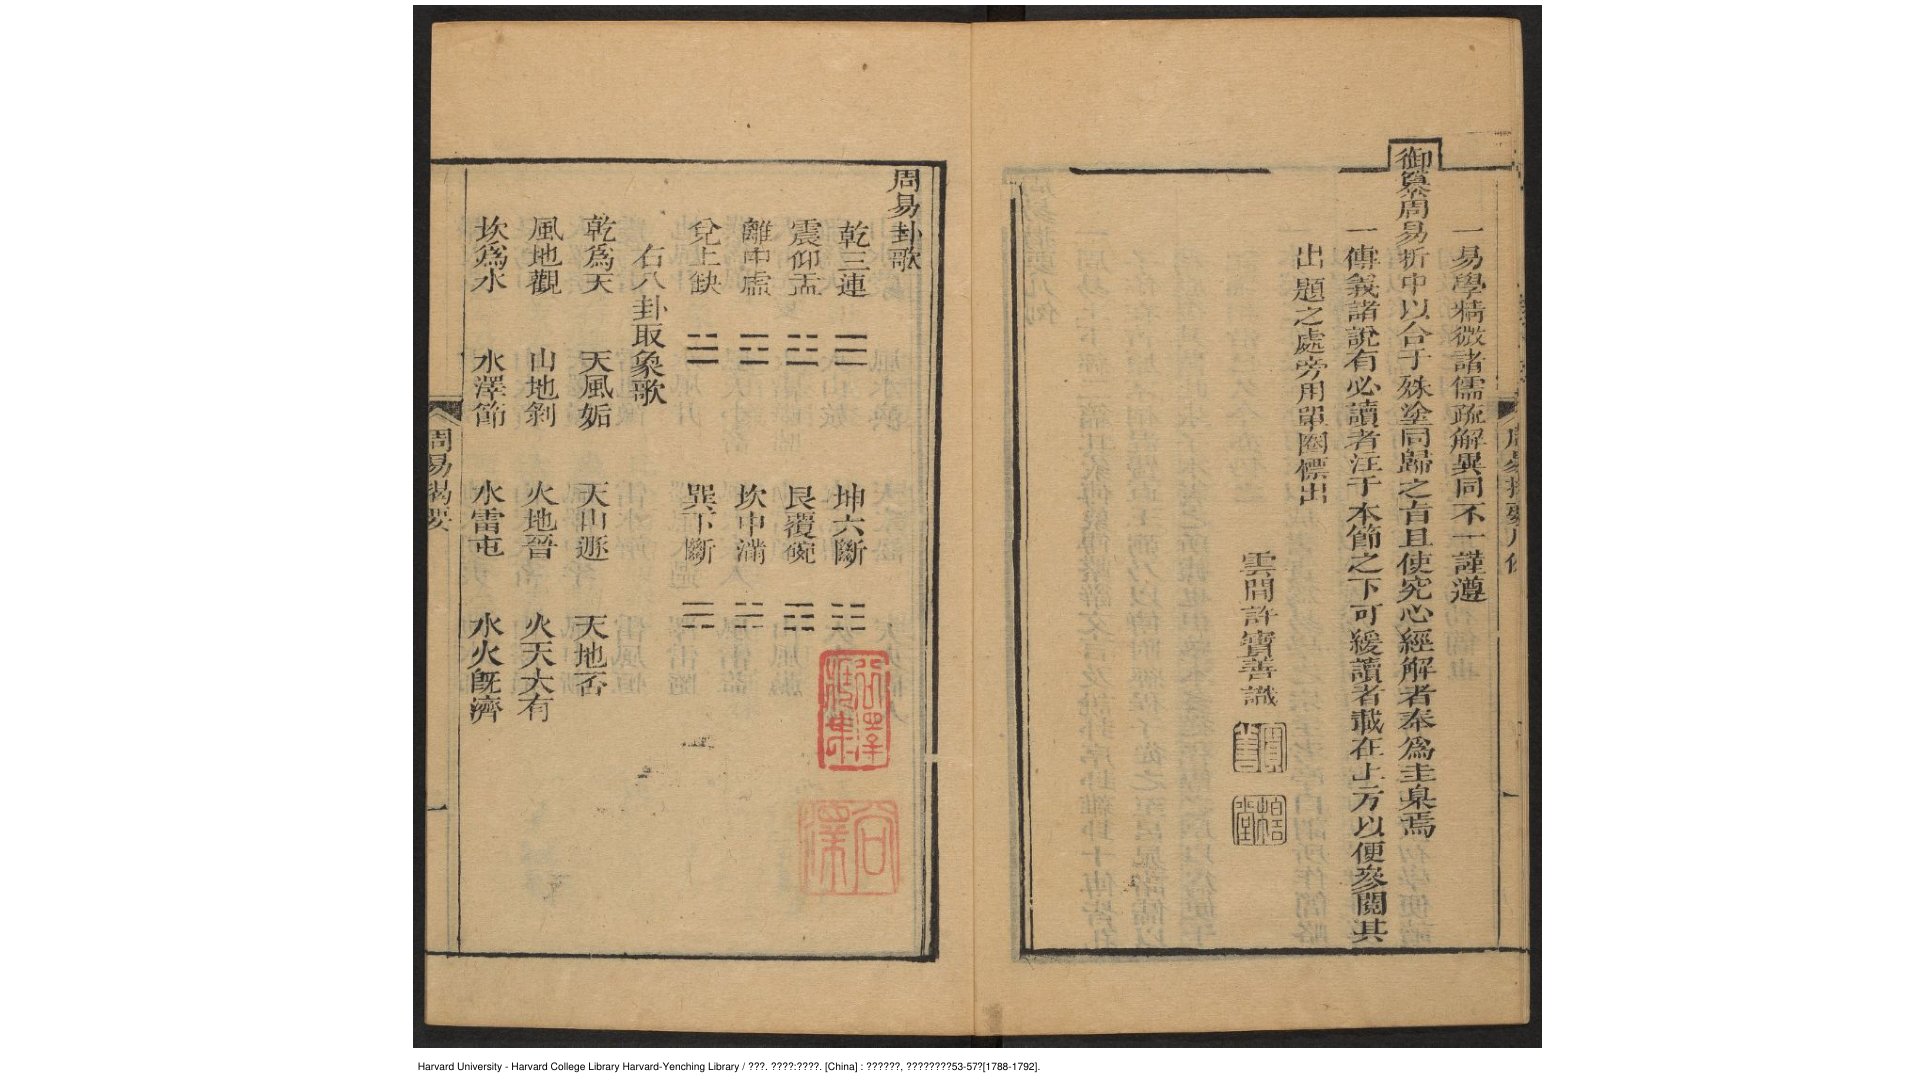 一易學精微諸儒疏解異同不一謹遵
御纂周易折中以合于殊塗同歸之旨且使究心經解者奉爲圭臬焉
一傳義諸說有必讀者注于本節之下可緩讀者載在上方以便叅閱其
出題之處旁用單圈標出
雲間許寶善識
周易卦歌
乾三連 ☰ 坤六斷 ☷
震仰盂 ☳ 艮覆碗 ☶
離中虛 ☲ 坎中滿 ☵
兌上缺 ☱ 巽下斷 ☴
右八卦取象歌
乾爲天 天風姤 天山遯 天地否
風地觀 山地剝 火地晉 火天大有
坎爲水 水澤節 水雷屯 水火旣濟
周易揭要
一
Harvard University - Harvard College Library Harvard-Yenching Library / ???. ????:????. [China] : ??????, ????????53-57?[1788-1792].